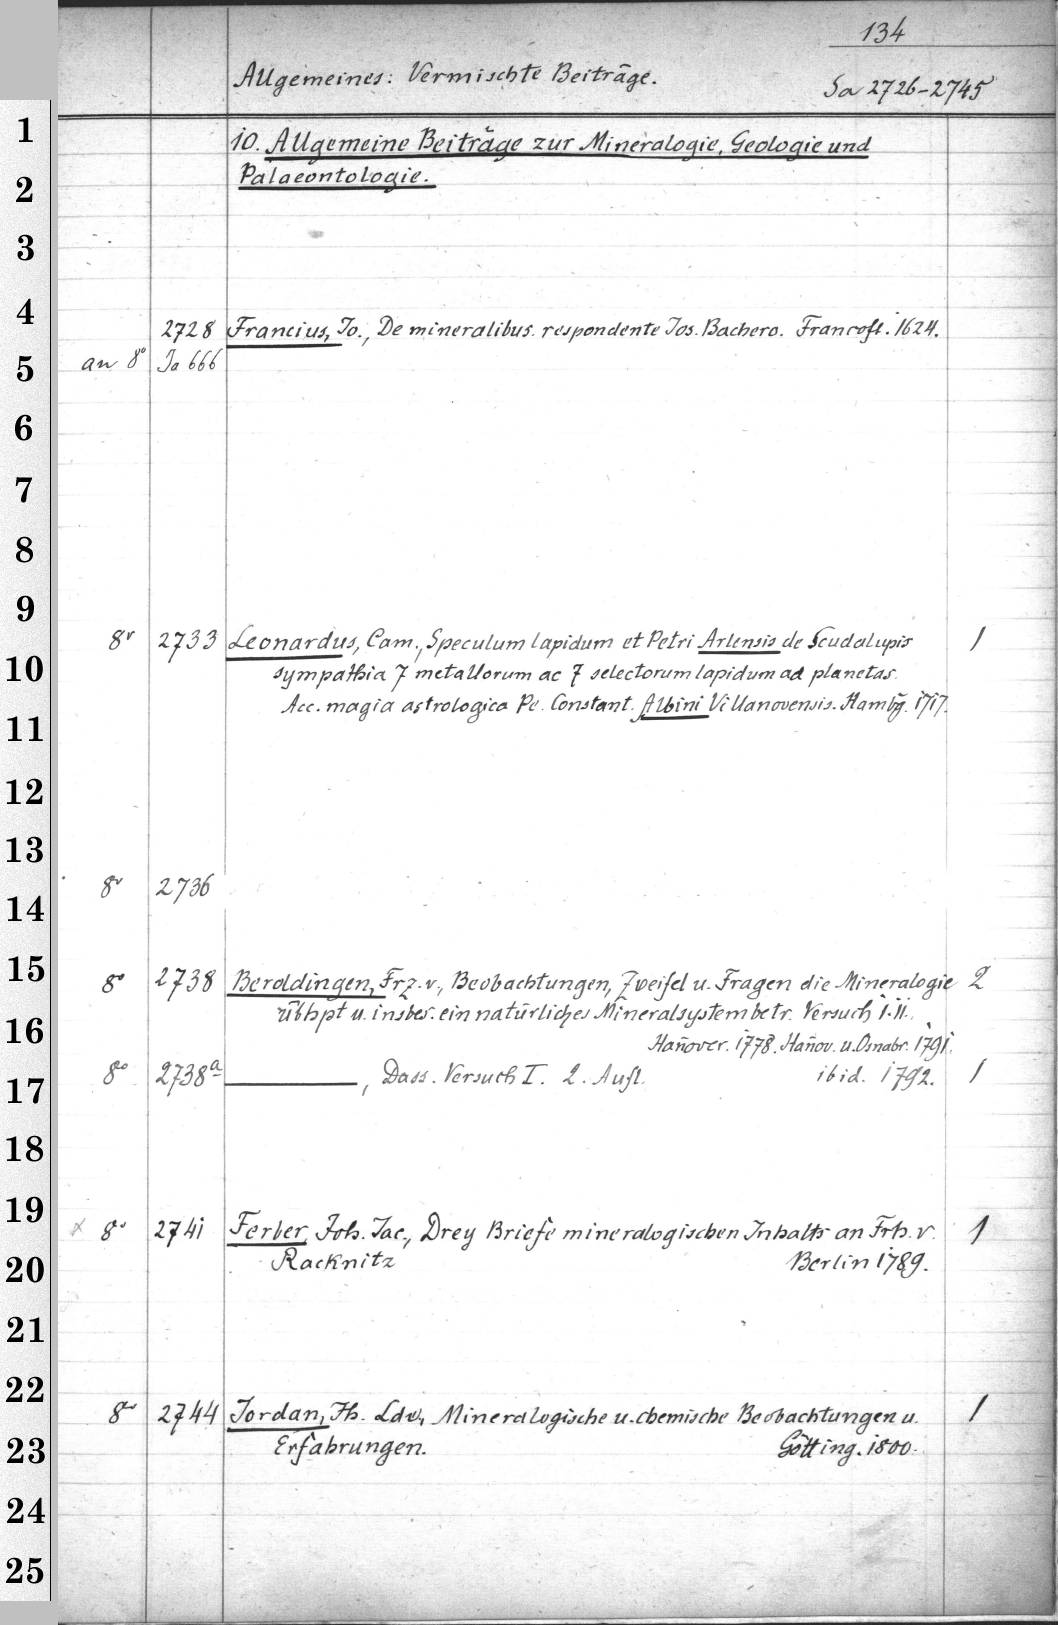 134
Allgemeines: Vermischte Beiträge. Sa 2726-2745
1
10. Allgemeine Beiträge zur Mineralogie, Geologie und
2
Palaeontologie.
3
4
2728 Francius, Jo., De mineralibus. respondente Jos. Bachero. Francoft. 1624.
5
an 8° Ja 666
6
7
8
9
8° 2733 Leonardus, Cam., Speculum lapidum et Petri Arlensis de Scudalupis 1
10
sympathia 7 metallorum ac 7 selectorum lapidum ad planetas.
Acc. magia astrologica Pe. Constant. Albini Villanovensis. Hambg. 1717.
11
12
13
8° 2736
14
15
8° 2738 Beroldingen, Frz. v., Beobachtungen, Zweifel u. Fragen die Mineralogie 2
übhpt u. insbes. ein natürliches Mineralsystem betr. Versuch I. II.
16
Hañover. 1778. Hañov. u. Osnabr. 1791.
8° 2738a ———, Dass. Versuch I. 2. Aufl. ibid. 1792. 1
17
18
19
x 8° 2741 Ferber, Joh. Jac., Drey Briefe mineralogischen Inhalts an Frh. v. 1
20
Racknitz Berlin 1789.
21
22
8° 2744 Jordan, Jh. Ldw., Mineralogische u. chemische Beobachtungen u. 1
23
Erfahrungen. Götting. 1800.
24
25